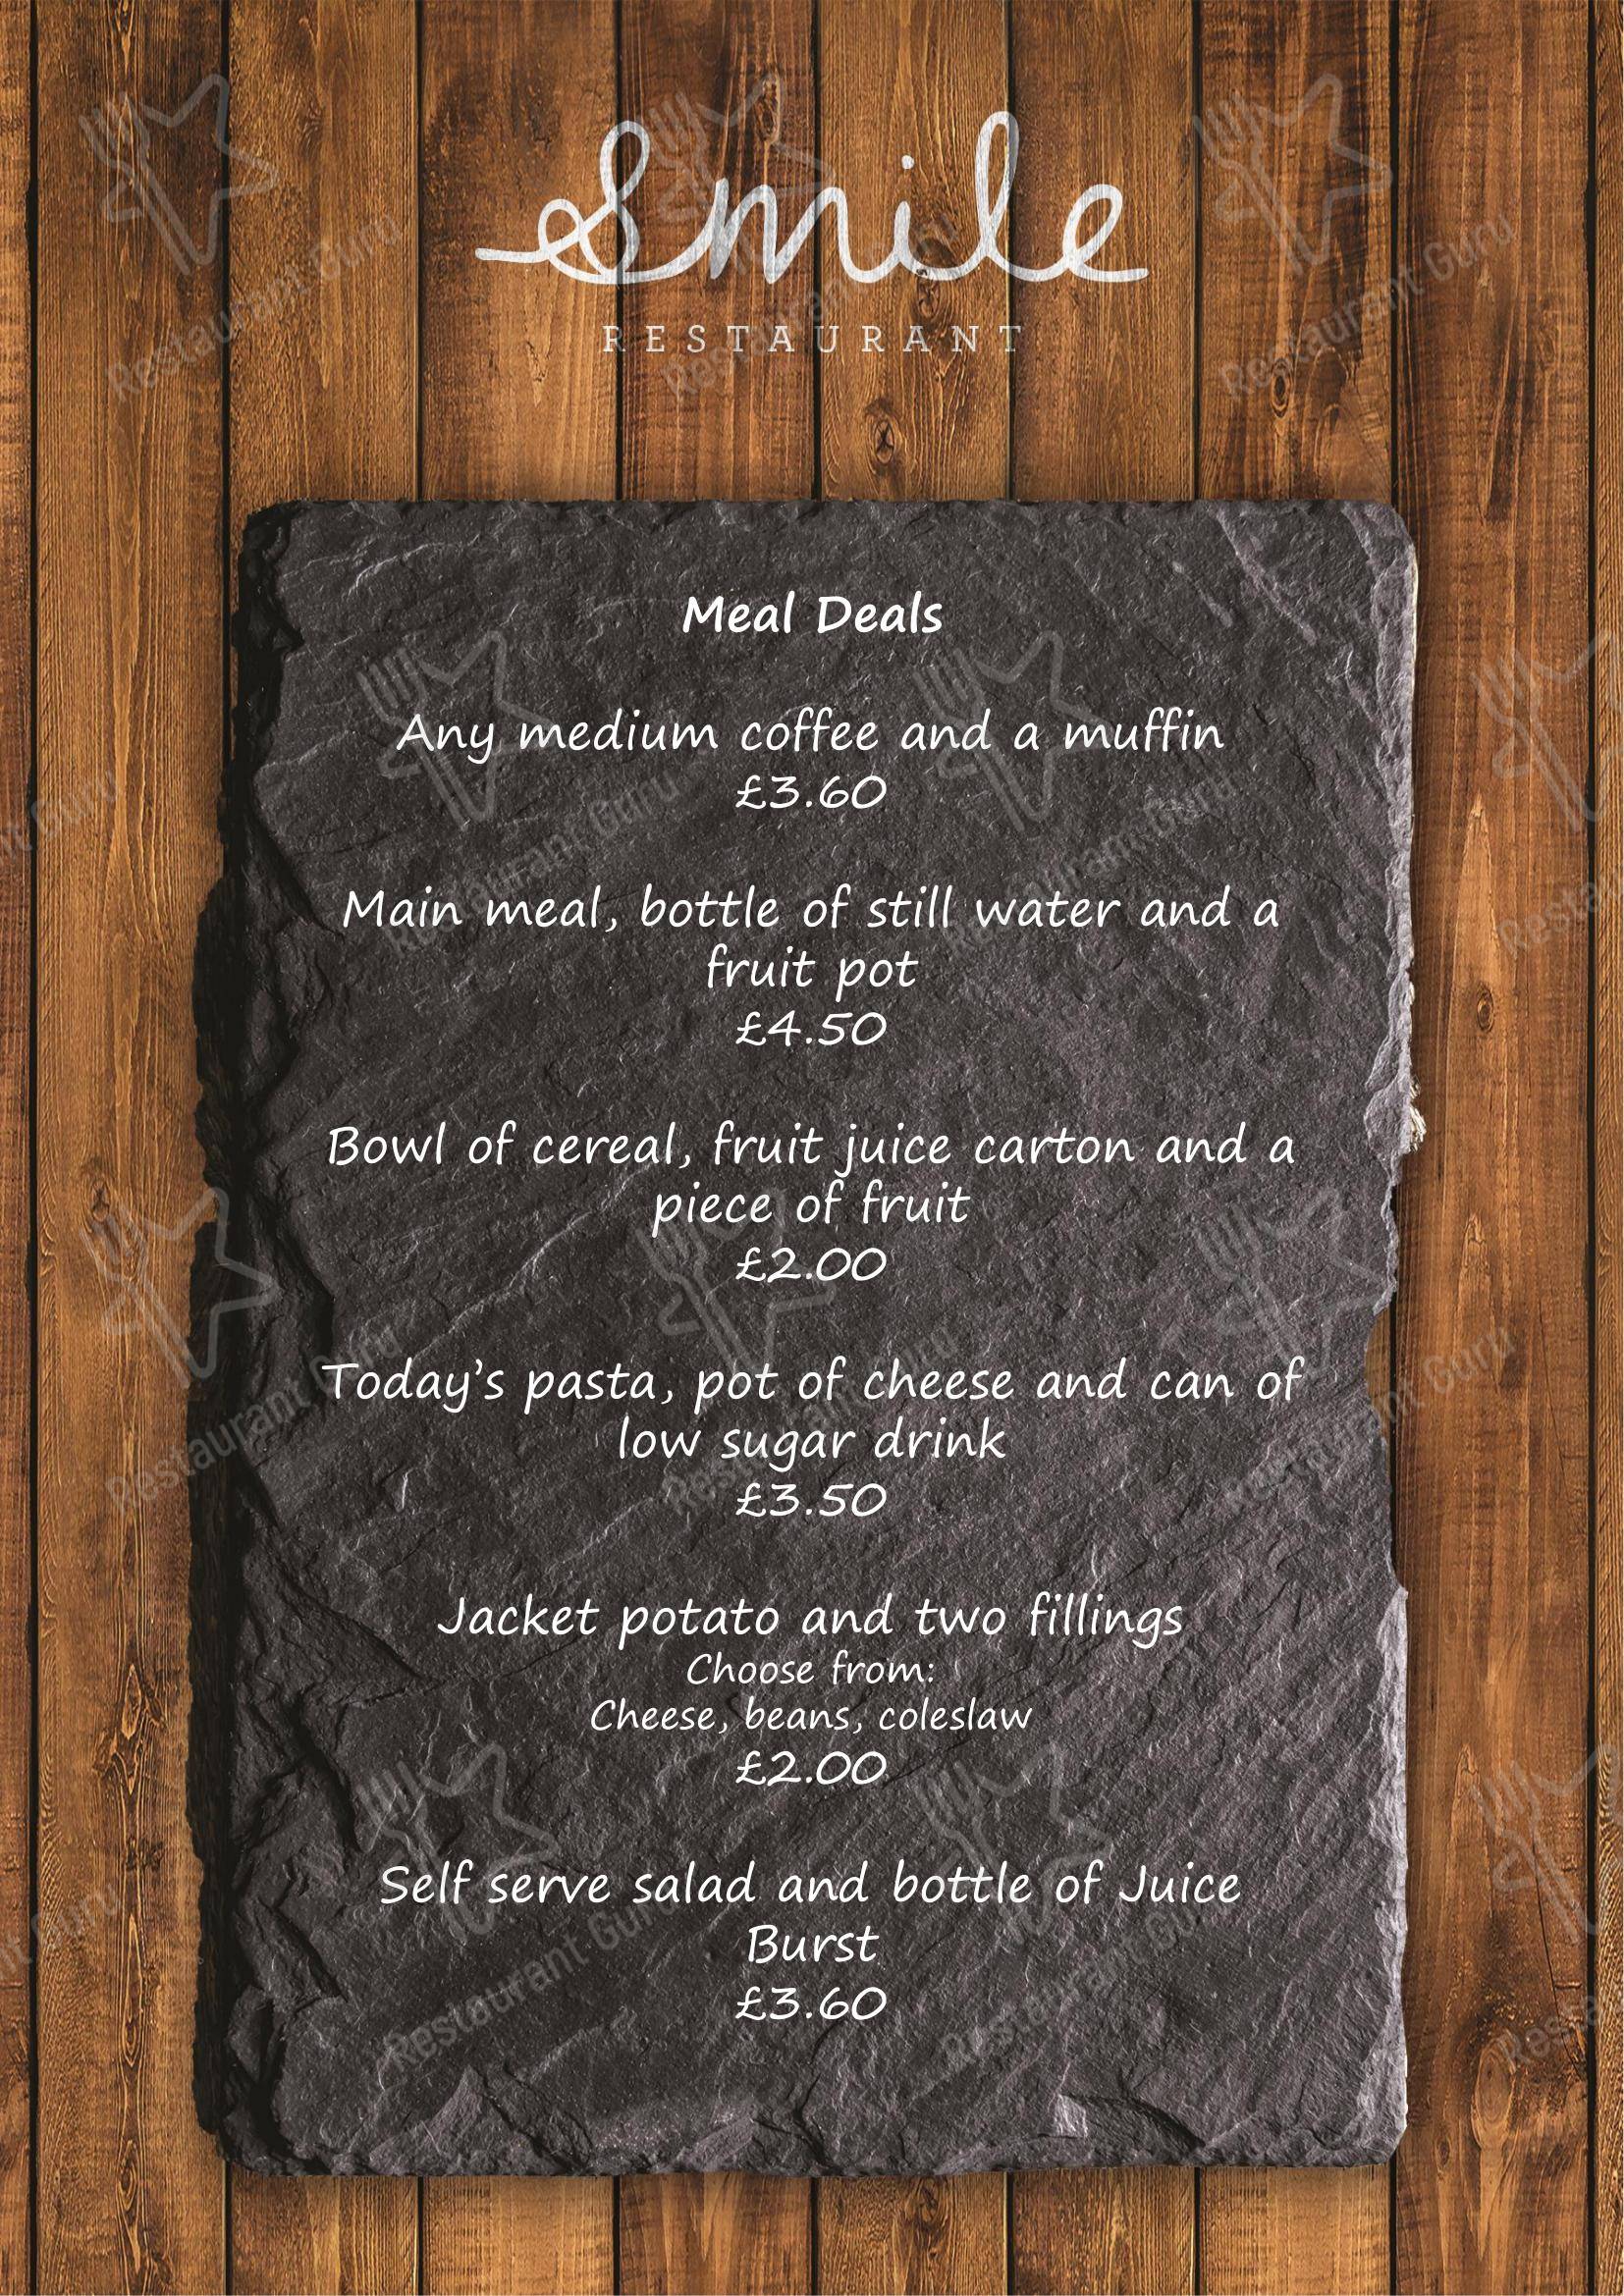 Smile
RESTAURANT
Meal Deals
Any medium coffee and a muffin
£3.60
Main meal, bottle of still water and a
fruit pot
£4.50
Bowl of cereal, fruit juice carton and a
piece of fruit
£2.00
Today’s pasta, pot of cheese and can of
low sugar drink
£3.50
Jacket potato and two fillings
Choose from:
Cheese, beans, coleslaw
£2.00
Self serve salad and bottle of Juice
Burst
£3.60
Restaurant Guru